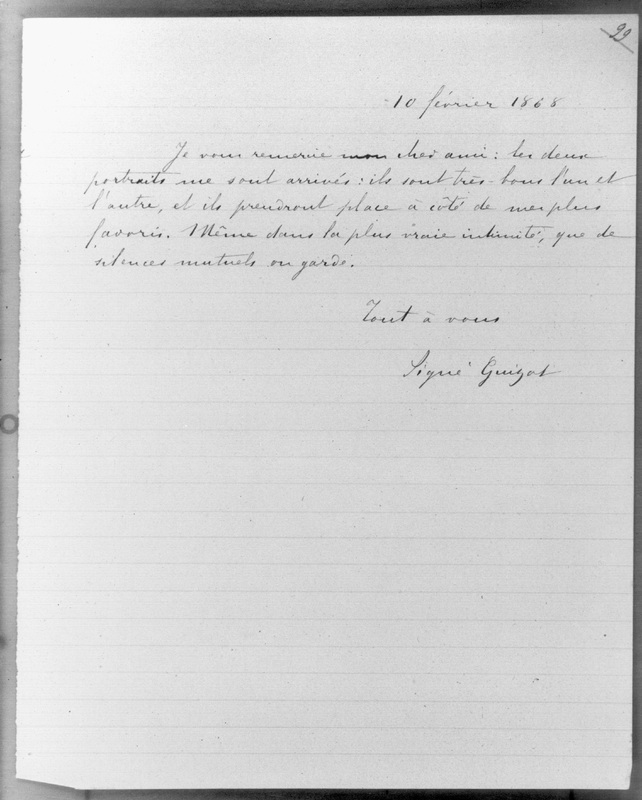 99
10 février 1868
Je vous remercie mon cher ami : les deux
portraits me sont arrivés : ils sont très-bons l'un et
l'autre, et ils prendront place à côté de mes plus
favoris. Même dans la plus vraie intimité, que de
silences mutuels on garde.
Tout à vous
Signé Guizot